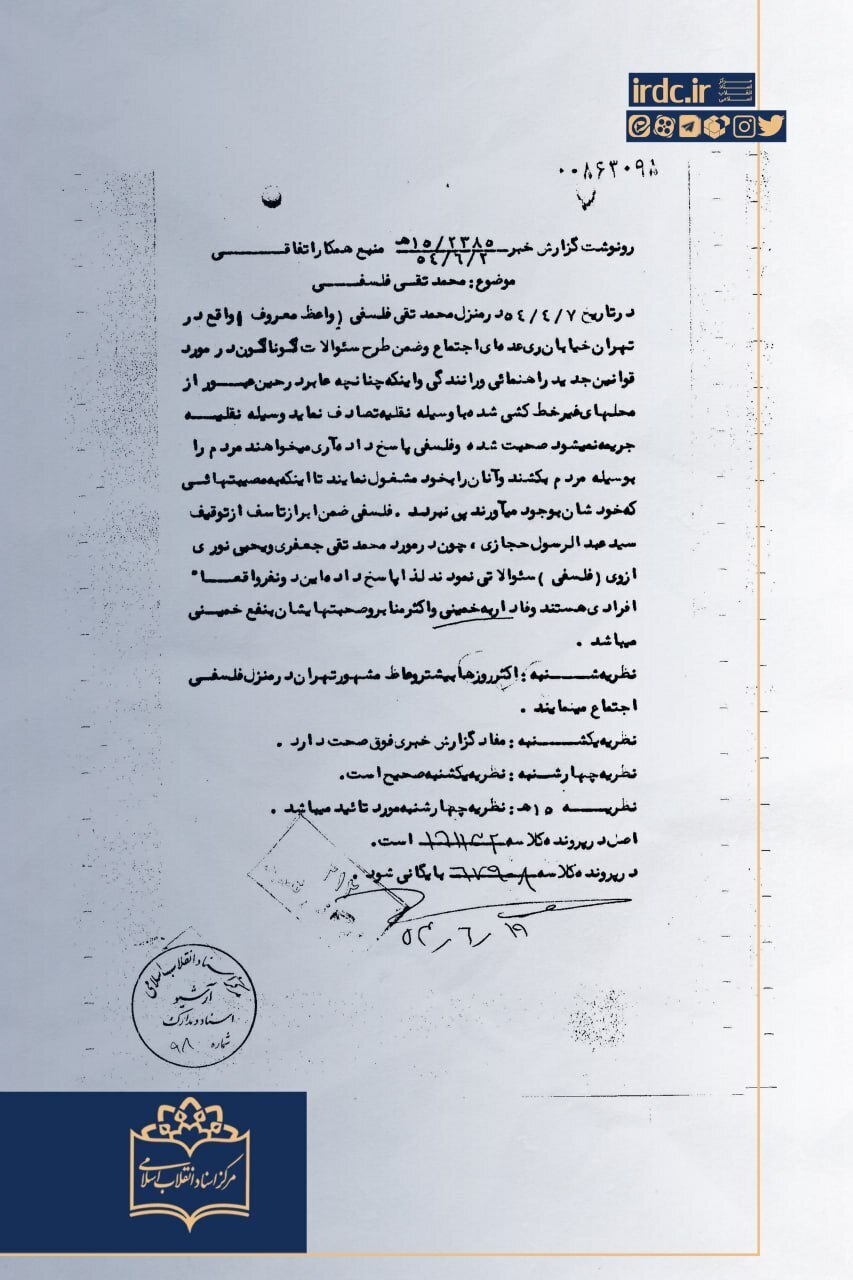 irdc.ir
مرکز
اسناد
انقلاب
اسلامی
۰۰۸۶۳۰۹۸
رونوشت گزارش خبر ۱۵/۲۳۸۵هـ منبع همکار اتفاقی
۵۴/۶/۲
موضوع: محمد تقی فلسفی
در تاریخ ۵۴/۴/۷ در منزل محمد تقی فلسفی (واعظ معروف) واقع در
تهران خیابان ری عده‌ای اجتماع و ضمن طرح سئوالات گوناگون در مورد
قوانین جدید راهنمائی و رانندگی و اینکه چنانچه عابر در حین عبور از
محلهای غیر خط کشی شده با وسیله نقلیه تصادف نماید وسیله نقلیه
جریمه نمیشود صحبت شده و فلسفی پاسخ داده آری میخواهند مردم را
بوسیله مردم بکشند و آنان را بخود مشغول نمایند تا اینکه به مصیبتهائی
که خودشان بوجود میآورند پی نبرند . فلسفی ضمن ابراز تاسف از توقیف
سید عبد الرسول حجازی ، چون در مورد محمد تقی جعفری و یحیی نوری
از وی (فلسفی) سئوالاتی نمودند لذا پاسخ داده این دو نفر واقعا"
افرادی هستند وفادار به خمینی و اکثر منابر و صحبتهایشان بنفع خمینی
میباشد .
نظریه شنبه : اکثر روزها بیشتر وعاظ مشهور تهران در منزل فلسفی
اجتماع مینمایند .
نظریه یکشنبه : مفاد گزارش خبری فوق صحت دارد .
نظریه چهارشنبه : نظریه یکشنبه صحیح است.
نظریه ۱۵هـ : نظریه چهارشنبه مورد تائید میباشد .
اصل در پرونده کلاسه است.
در پرونده کلاسه بایگانی شود .
۵۴/۶/۱۹
مرکز اسناد انقلاب اسلامی
آرشیو
اسناد و مدارک
شماره ۹۸
مرکز اسناد انقلاب اسلامی